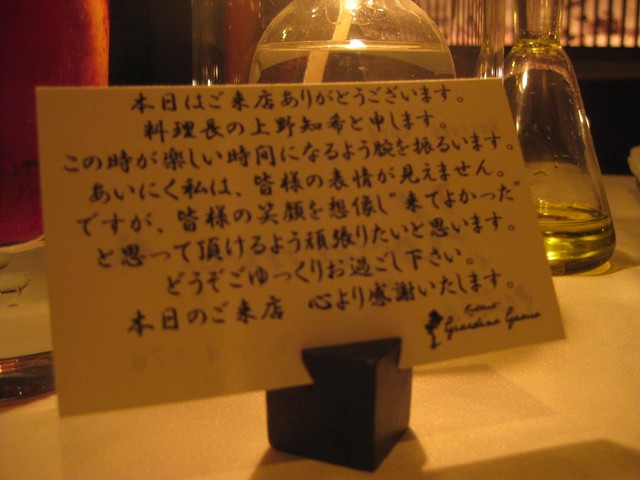 本日はご来店ありがとうございます。
料理長の上野知希と申します。
この時が楽しい時間になるよう腕を振るいます。
あいにく私は、皆様の表情が見えません。
ですが、皆様の笑顔を想像し"来てよかった"
と思って頂けるよう頑張りたいと思います。
どうぞごゆっくりお過ごし下さい。
本日のご来店 心より感謝いたします。
Giardino